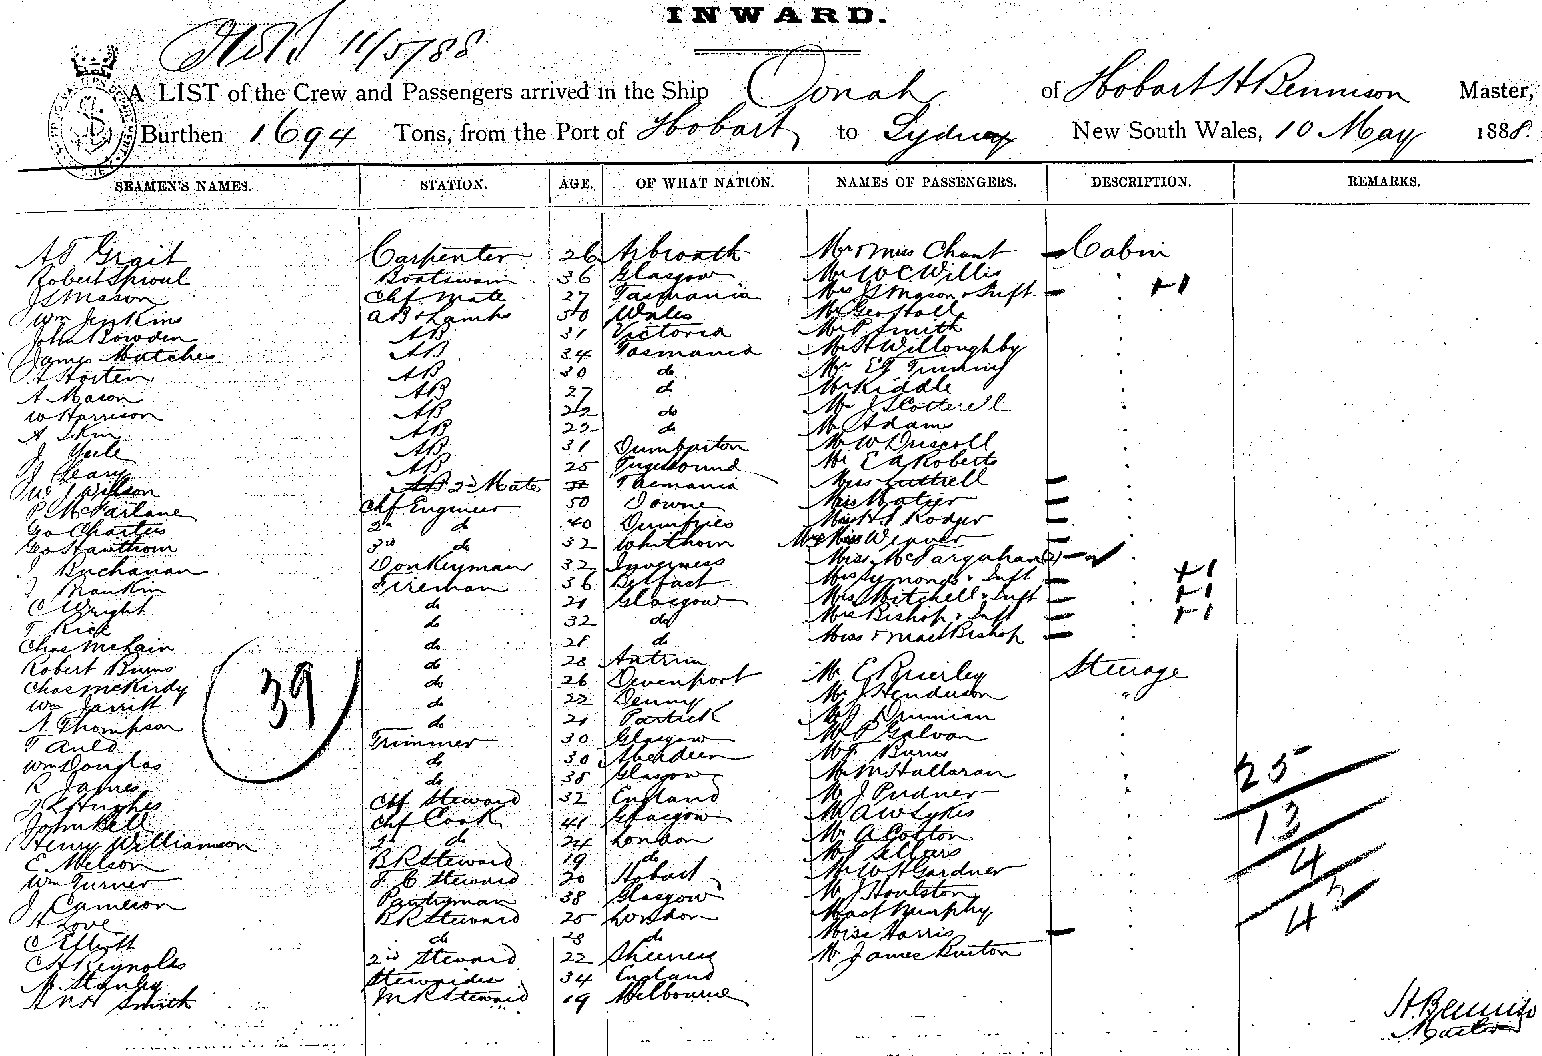 INWARD.
11/5/88
A LIST of the Crew and Passengers arrived in the Ship Oonah of Hobart H Bennison Master,
Burthen 1694 Tons, from the Port of Hobart to Sydney New South Wales, 10 May 1888.
SEAMEN'S NAMES. STATION. AGE. OF WHAT NATION. NAMES OF PASSENGERS. DESCRIPTION. REMARKS.
Carpenter 26 Arbroath Mr & Miss Chant Cabin
Robert Sproul Boatswain 36 Glasgow Mr W C Willis
J S Mason Chf Mate 27 Tasmania Mrs J S Mason & Inft
Wm Jenkins AB & Lamps 50 Wales Mr Geo Hall
John Bowden AB 31 Victoria Mr P Smith
James Matches AB 34 Tasmania Mr H Willoughby
AB 30 do Mr
A Mason AB 27 do Mr Kiddle
W Harrison AB 22 do Mr J S Cotterell
AB 22 do Mr Adams
J Yule AB 31 Dumbarton Mr W Driscoll
J Leary AB 25 Mr E A Roberts
Wilson AB 2nd Mate Tasmania Miss Luttrell
P McFarlane Chf Engineer 50 Miss
Geo Charters 2nd do 40 Dumfries
Geo Hawthorn 3rd do 32 Whithorn Weaver
J Buchanan Donkeyman 32 Inverness Miss McFarquhar
J Rankin Fireman 36 Belfast Mrs Symons & Inft
C Wright do 21 Glasgow Mrs Mitchell & Inft
T Rick do 32 do Mrs Bishop & Inft
Chas McLain do 28 do Miss & Mast Bishop
Robert Burns do 28 Antrim Mr E Brierley Steerage
Chas McKirdy do 26 Devenport Mr J Henderson "
Wm Jarritt do 22 Denny Mr J
A Thompson do 21 Partick Mr P Galvan
T Auld Trimmer 30 Glasgow Mr T Burns
Wm Douglas do 30 Aberdeen Mr M Hallaran
R James do 38 Glasgow Mr J Pudner
Hughes Chf Steward 32 England Mr A W Sykes
John Kell Chf Cook 41 Glasgow Mr A Coston
Henry Williamson 2nd do 24 London Mr J Sellars
E Nelson B R Steward 19 do Mr W H Gardner
Wm Turner F C Steward 20 Hobart Mr J Houlston
J Cameron Pantryman 38 Glasgow Mast Murphy
A Love B R Steward 25 London Miss Harris
C Elliott do 28 do Mr James Burton
C H Reynolds 2nd Steward 22 Sheerness
M Stanley Stewardess 34 England
Smith M R Steward 19 Melbourne
39
25
13
4
43
H Bennison
Master